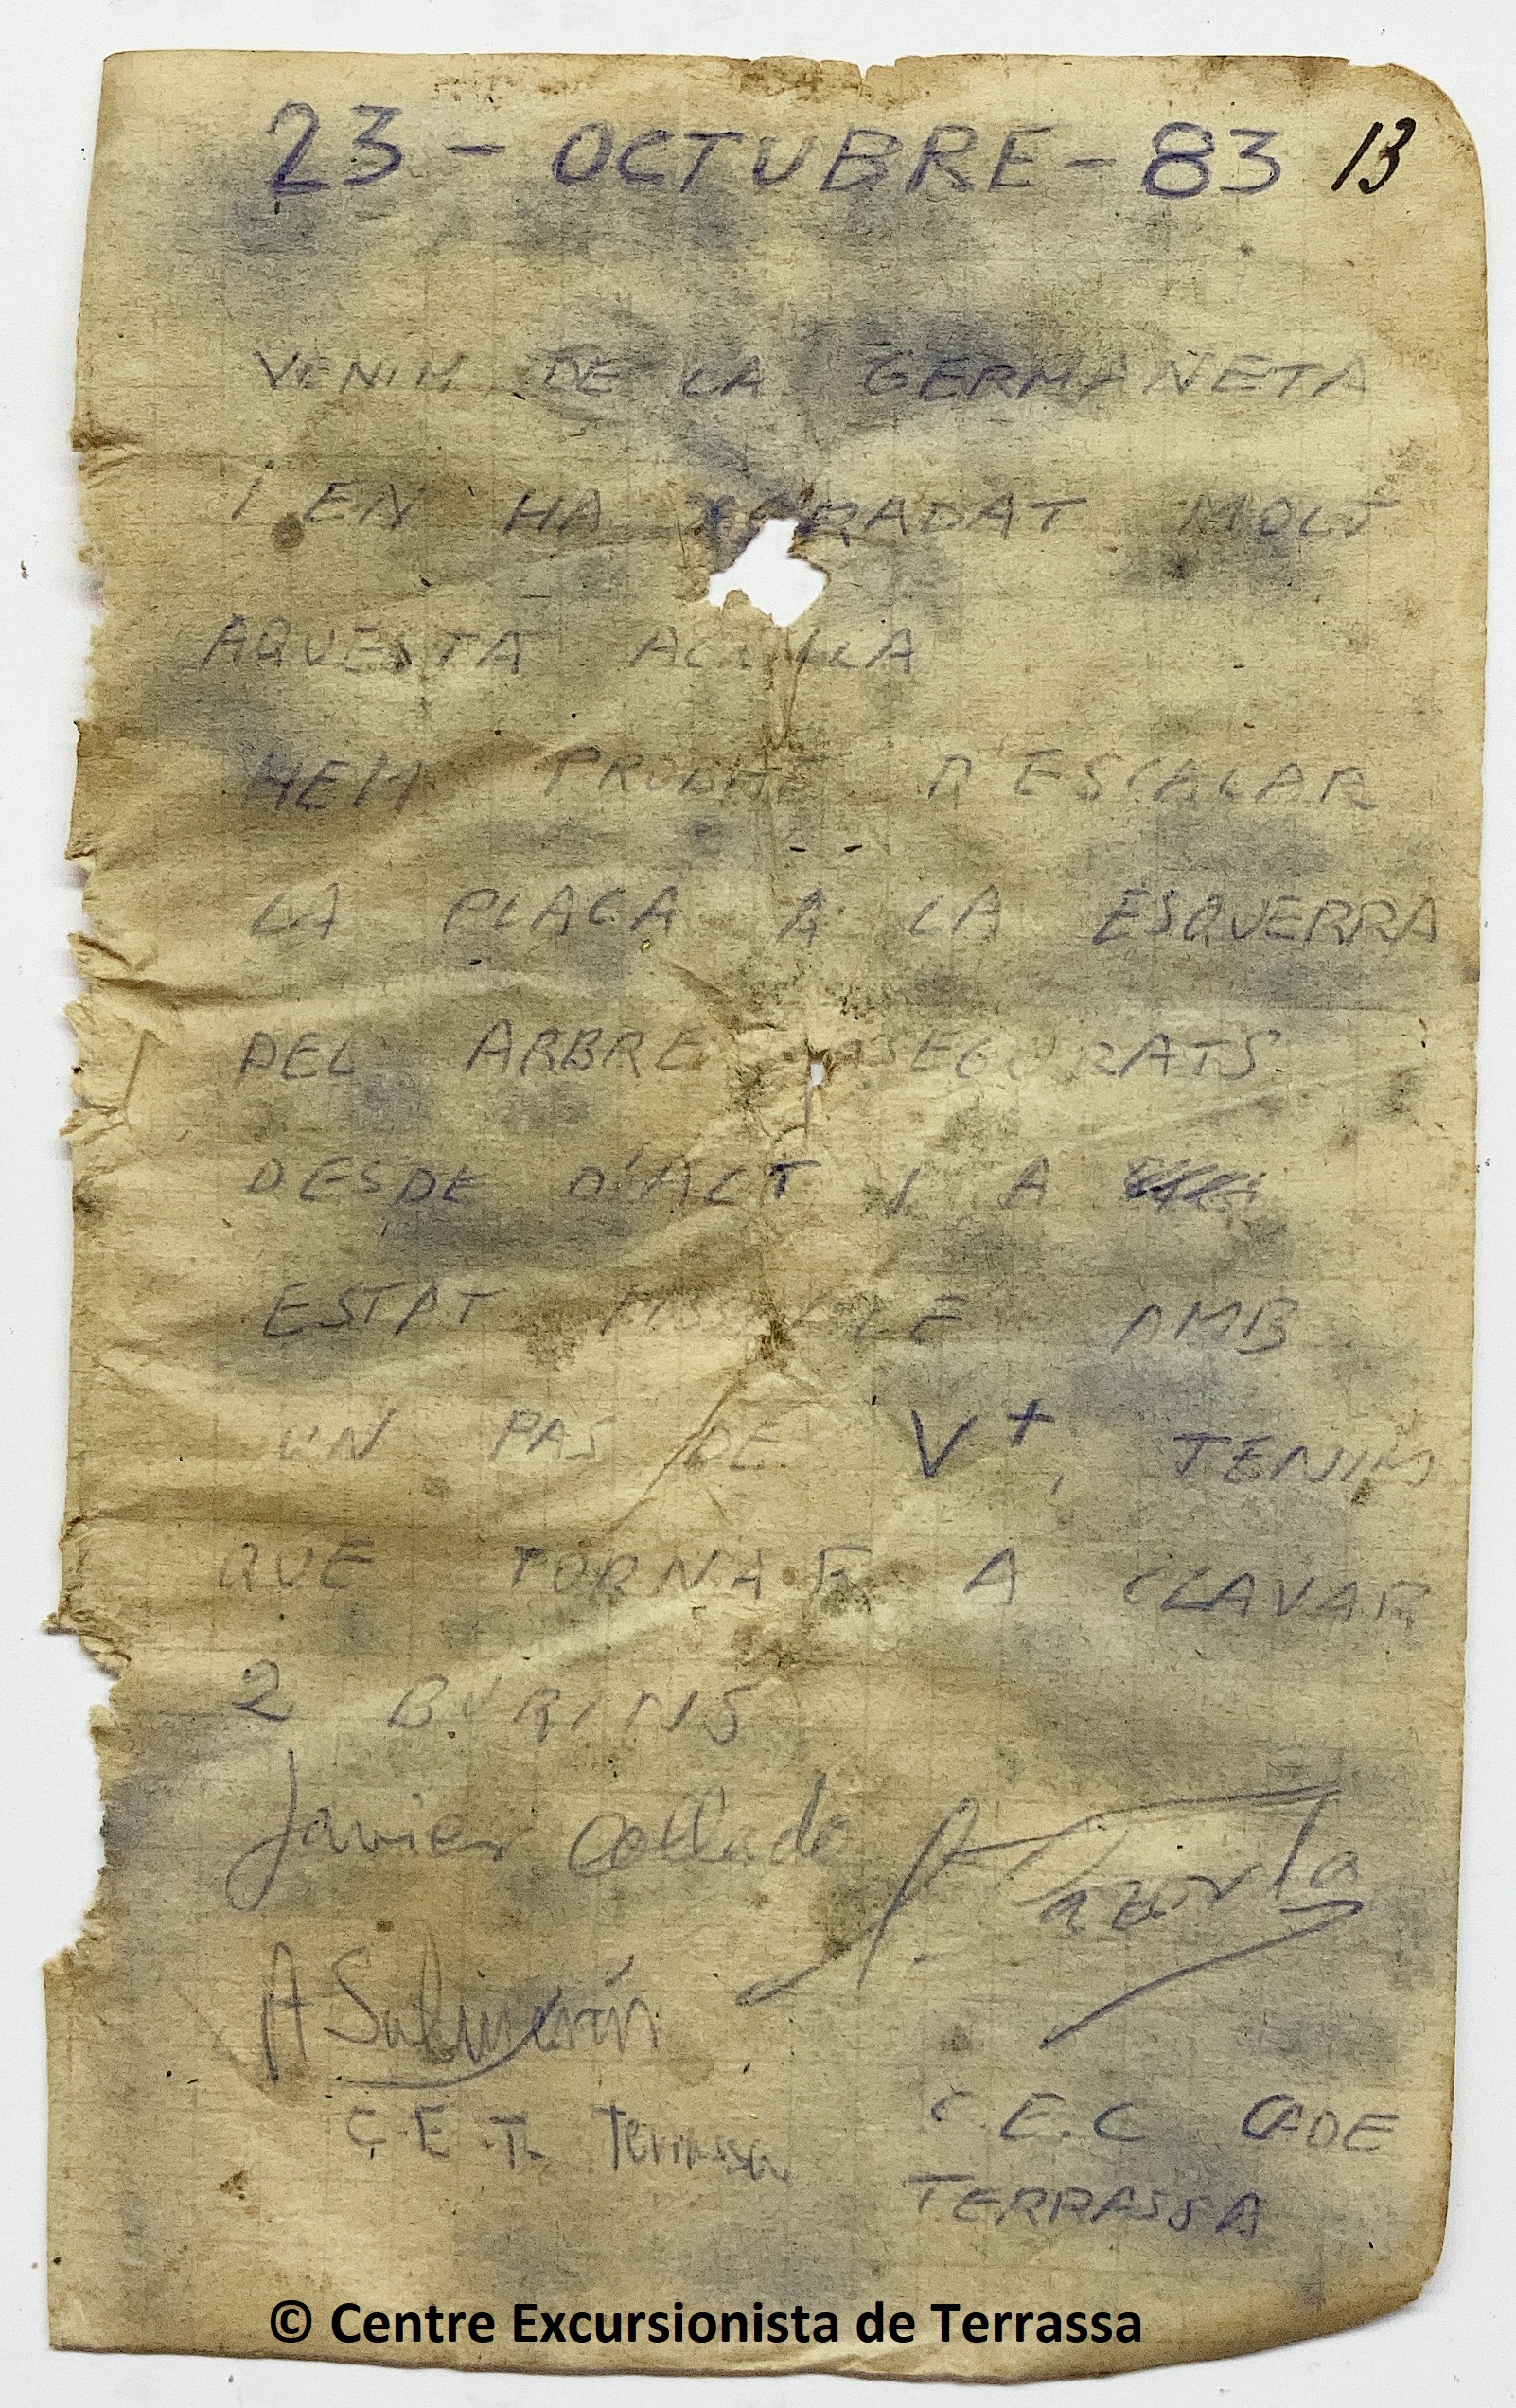 23 - OCTUBRE - 83 13
VENIM DE LA GERMANETA
i EN HA AGRADAT MOLT
AQUESTA AGULLA
HEM PROBAT D'ESCALAR
LA PLACA A LA ESQUERRA
DEL ARBRE ASEGURATS
DESDE D'ALT I A
ESTAT POSSIBLE AMB
UN PAS DE V+, TENIM
QUE TORNAR A CLAVAR
2 BURINS
Javier Collado A
A
C.E.T. Terrassa C.E.C CADE
TERRASSA
© Centre Excursionista de Terrassa